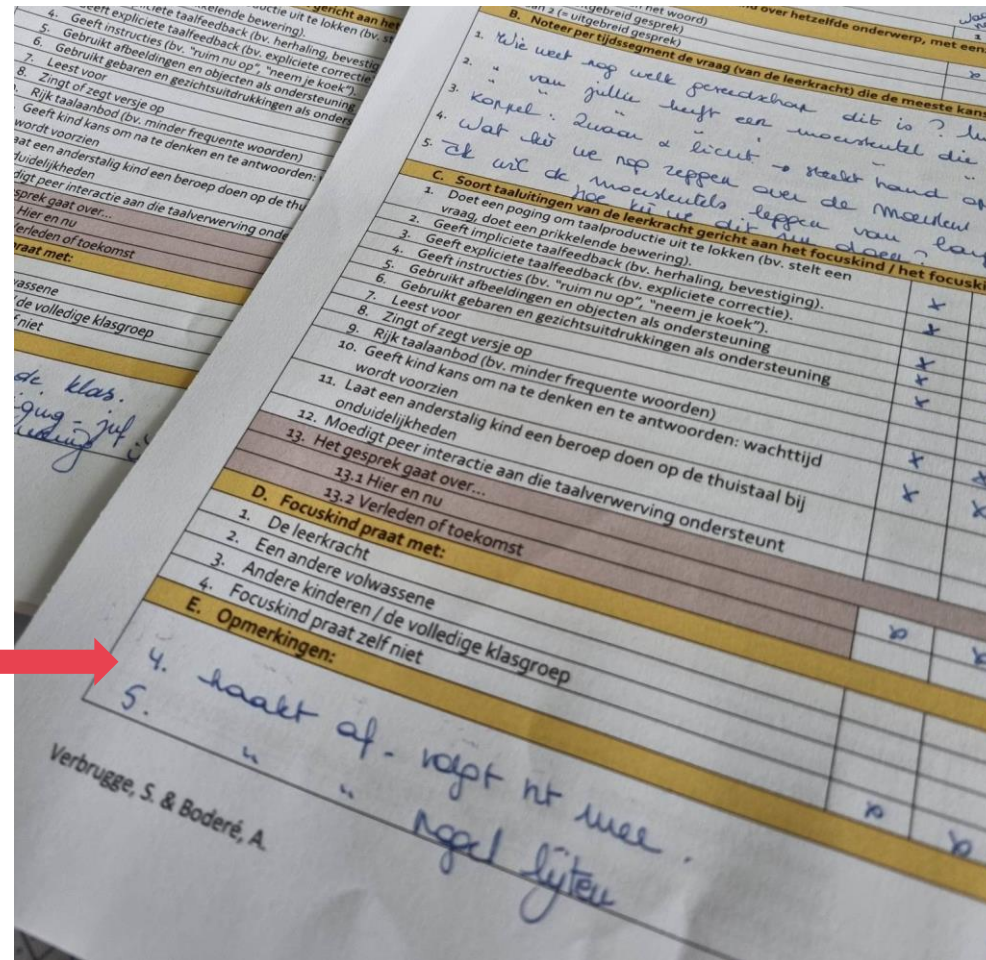 4. Geeft expliciete taalfeedback (bv. herhaling, bevestig
5. Geeft instructies (bv. "ruim nu op", "neem je koek").
6. Gebruikt afbeeldingen en objecten als ondersteuning
7. Gebruikt gebaren en gezichtsuitdrukkingen als onders
8. Leest voor
Zingt of zegt versje op
Rijk taalaanbod (bv. minder frequente woorden)
Geeft kind kans om na te denken en te antwoorden:
wordt voorzien
aat een anderstalig kind een beroep doen op de thu
duidelijkheden
digt peer interactie aan die taalverwerving onde
sprek gaat over...
Hier en nu
erleden of toekomst
raat met:
wassene
de volledige klasgroep
f niet
de klas.
an 2 (= uitgebreid gesprek)
over hetzelfde onderwerp, met een
B. Noteer per tijdssegment de vraag (van de leerkracht) die de meeste kans
1. Wie weet nog welk gereedschap dit is ?
2. " van jullie heeft een moersleutel die
3. Koppel :
4. Wat kū we nog zeggen over de
5. Ik wil de moersleutels leggen van
hoe kū we dit doen ?
C. Soort taaluitingen van de leerkracht gericht aan het focuskind / het focuski
1. Doet een poging om taalproductie uit te lokken (bv. stelt een
vraag, doet een prikkelende bewering).
2. Geeft impliciete taalfeedback (bv. herhaling, bevestiging).
3. Geeft expliciete taalfeedback (bv. expliciete correctie).
4. Geeft instructies (bv. "ruim nu op", "neem je koek").
5. Gebruikt afbeeldingen en objecten als ondersteuning
6. Gebruikt gebaren en gezichtsuitdrukkingen als ondersteuning
7. Leest voor
8. Zingt of zegt versje op
9. Rijk taalaanbod (bv. minder frequente woorden)
10. Geeft kind kans om na te denken en te antwoorden: wachttijd
wordt voorzien
11. Laat een anderstalig kind een beroep doen op de thuistaal bij
onduidelijkheden
12. Moedigt peer interactie aan die taalverwerving ondersteunt
13. Het gesprek gaat over...
13.1 Hier en nu
13.2 Verleden of toekomst
D. Focuskind praat met:
1. De leerkracht
2. Een andere volwassene
3. Andere kinderen / de volledige klasgroep
4. Focuskind praat zelf niet
E. Opmerkingen:
4. haakt af - volgt nt mee .
5. " "
Verbrugge, S. & Boderé, A.